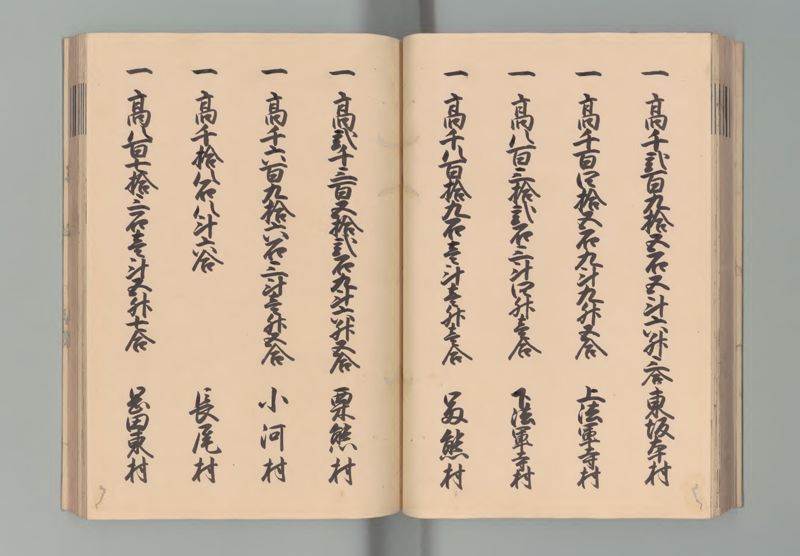 一 高千弐百九拾五石五斗六升六合 東坂本村
一 高千百四拾五石九斗九升五合 上法軍寺村
一 高八百三拾弐石三斗四升壱合 下法軍寺村
一 高千八百拾九石壱斗壱升壱合 熊村
一 高弐千三百五拾弐石九斗六升五合 栗熊村
一 高千六百九拾六石三斗壱升五合 小河村
一 高千拾八石八斗六合 長尾村
一 高八百七拾三石壱斗五升七合 岡田東村